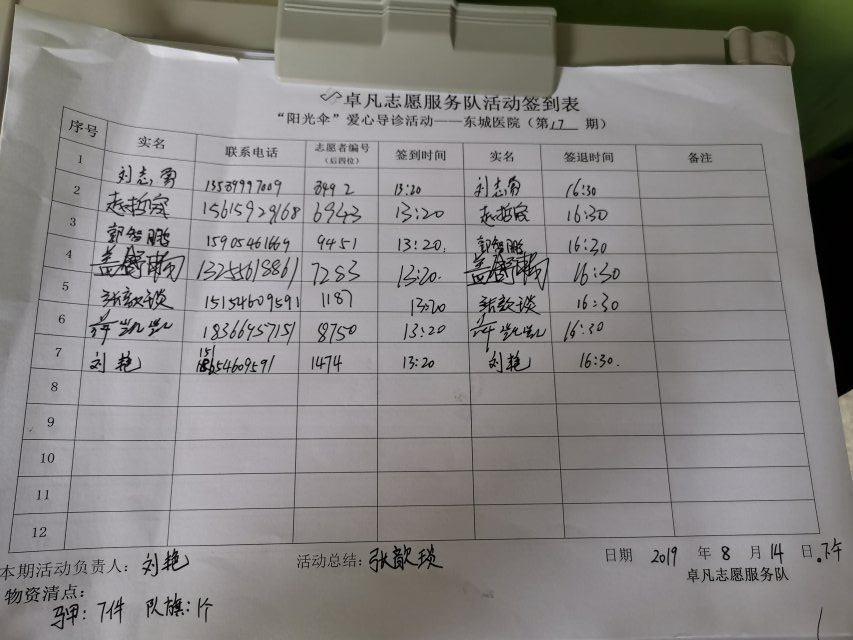 卓凡志愿服务队活动签到表
“阳光伞”爱心导诊活动——东城医院（第17期）
序号 实名 联系电话 志愿者编号（后四位） 签到时间 实名 签退时间 备注
1 刘志勇 13589997009 8492 13:20 刘志勇 16:30
2 赵哲 15615929168 6943 13:20 赵哲 16:30
3 郭智鹏 15905461669 9451 13:20. 郭智鹏 16:30
4 盖舒 13255618861 7283 13:20. 盖舒 16:30
5 张歆琰 15154609591 1187 13:20 张歆琰 16:30
6 蒋凯凯 18366457151 8750 13:20 蒋凯凯 16:30
7 刘艳 54609591 1474 13:20 刘艳 16:30.
8
9
10
11
12
本期活动负责人：刘艳 活动总结：张歆琰 日期 2019 年 8 月 14 日.下午
卓凡志愿服务队
物资清点：
马甲：7件 队旗：1个